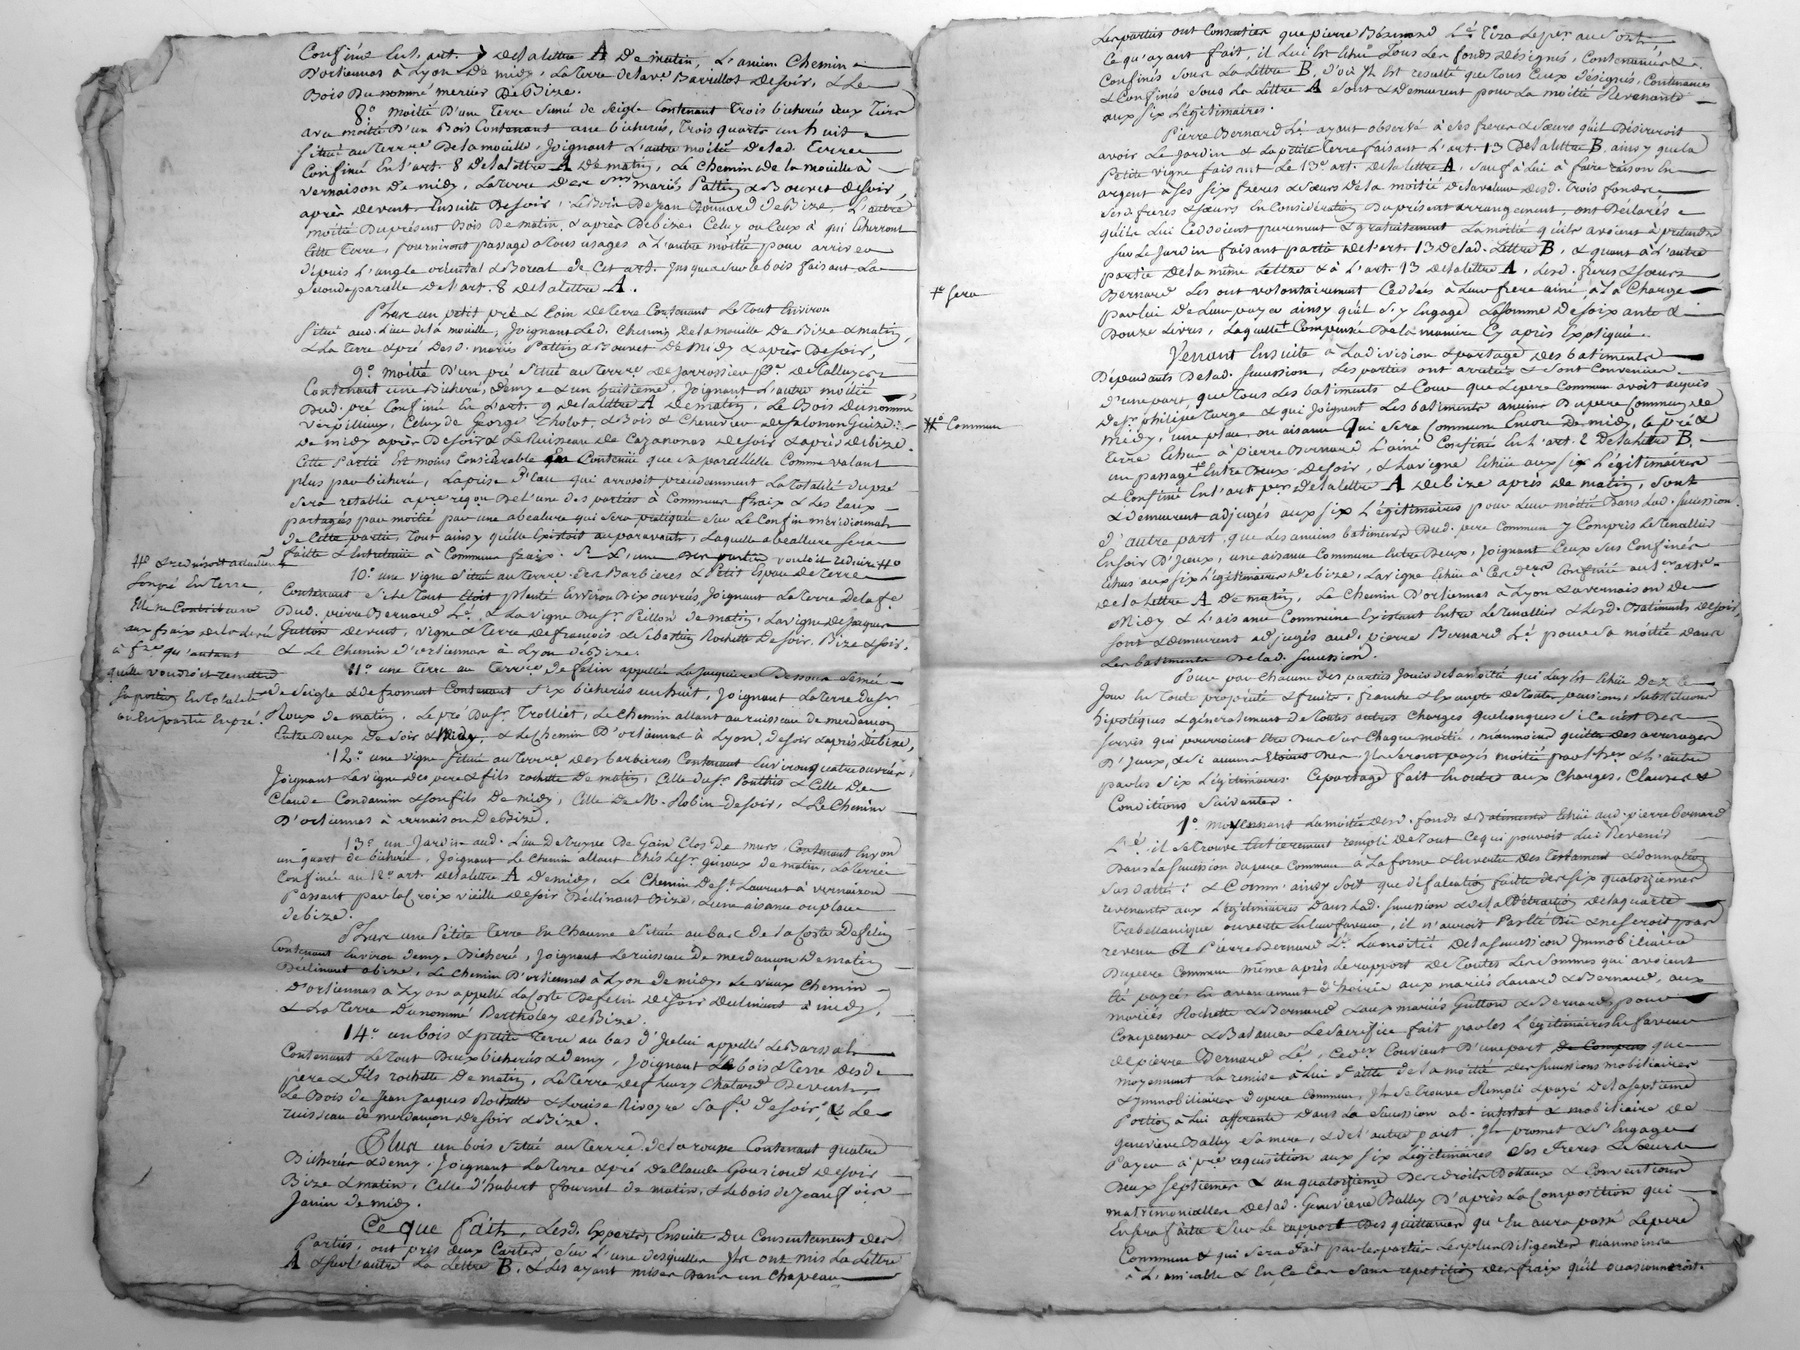 Confiné En l'art. 7 de la lettre A De matin, L'ancien Chemin
D'orliennas à Lyon De midy, La terre de la ve Barrillot De soir, & Le
Bois Du nommé mercier De Bize.
8.° moitié D'une terre Semé de Seigle Contenant trois bicherés deux tiers
avec moitié D'un Bois Contenant une bicherée, trois quarts un huit
Situé au Terre De la mouille, Joignant L'autre moitié De lad. terre
Confinée En l'art. 8 De la lettre A De matin, Le Chemin de la mouille à
vernaison De midy, La terre D'es mariés Pattin & Bouvet De soir,
après De vent Ensuite De soir, Le Bois De Jean Bonnard De Bize, L'autre
moitié Du présent Bois De matin, & après De bize. Celuy ou Ceux à qui Echerront
Cette terre, fourniront passage à tous usages à L'autre moitié pour arriver
Depuis L'angle oriental & Boreal de Cet art. Jusques sur le bois faisant La
Seconde parcelle De l'art. 8 De la lettre A.
Plus un petit pré & Coin De terre Contenant Le tout Environ
Situé aud. Lieu De la mouille, Joignant Led. Chemin De la mouille De Bize & matin,
& La terre & pré Desd. mariés Pattin & Bouvet De Midy & après De soir,
9.° moitié D'un pré Situé au terre De Jarrossieu De Taluyers
Contenant une Bicheré, Demy & un huitieme, Joignant L'autre moitié
Dud. pré Confiné En L'art. 9 De la lettre A De matin, Le Bois Du nomme
Verpilleux, Celuy de George Tholot, & Bois & Chenevier De Salomon Guize
De midy après De soir & Le Ruisseau de Cazanonas De soir & après De bize.
Cette Partie Est moins Considerable En Contenüe que Sa pareille Comme valant
plus par bicheré, La prise d'Eau qui arrosoit precedemment La totalité Du pré
Sera retablie après reçon De L'une Des parties à Communs fraix & Les Eaux
partagés par moitié par une abealure qui Sera pratiquée Sur Le Confin meridionnal
de Cette partie, Tout ainsy qu'elle Existoit auparavant, Laquelle abeallure Sera
faitte & Entretenüe à Communs fraix. Si L'une Des parties vouloit reduire
10.° une vigne Située au terre des Barbieres & Petit Espau De terre
Contenant Si Le Tout Etoit planté Environ Dix ouvrées, Joignant La terre De la fe
Dud. pierre Bernard L'é, & La vigne Du Sr. Peillon De matin, La vigne De Jacques
Gutton De vent, vigne & terre De francois & Sebastien Rochette De soir, Bize & soir,
& Le Chemin d'orliennas à Lyon De Bize.
11.° une terre au terre de felin appellée La Jaquiere Dessous Semée
De Seigle & De froment Contenant Six bicherés un huit, Joignant La terre Du Sr.
Roux de matin, Le pré Du Sr. Trolliet, Le Chemin allant au ruisseau de merdanson
Entre Deux De Soir & Midy, & Le Chemin D'orliennas à Lyon, De soir & après De bize,
12.° une vigne Située au terre Des barbieres Contenant Environ quatre ouvrées
Joignant La vigne Des pere & fils rochette De matin, Celle du Sr. Ponthus & Celle De
Claude Condamin & Son fils De midy, Celle De M. Robin De soir, & Le Chemin
D'orliennas à vernaison De Bize.
13.° un Jardin aud. Lieu De Clos De murs, Contenant Environ
un quart de bicheré, Joignant Le Chemin allant Chés Le Sr. giroux De matin, La terre
Confinée au 12.° art. De la lettre A De midy, Le Chemin De St. Laurent à vernaison
Passant par la Croix vieille De soir Declinant Bize, & une aisance ou place
De bize.
Plus une Petite terre En Chaume Située au bas de la Coste De felin
Contenant Environ demy Bicheré, Joignant Le ruisseau De merdanson De matin
Declinant à bize, Le Chemin D'orliennas à Lyon De midy, Le vieux Chemin
D'orliennas à Lyon appellé La Coste De felin De soir Declinant à midy,
& La terre Du nommé Bertholey De Bize.
14.° un bois & petite terre au bas d'Jcelui appellé Le Barsal
Contenant Le Tout Deux bicherés & Demy, Joignant Le bois & terre Desd.
pere & Fils rochette De matin, La terre De fleury Chatard De vent,
Le Bois de Jean Jacques Rochette & Louise Rivoyre Sa fe. De soir, & Le
ruisseau de merdanson De soir & Bize.
Plus un bois Situé au terre De la roure Contenant quatre
Bicherés & Demy, Joignant La terre & pré De Claude Gouziond De soir
Bize & matin, Celle d'hubert fournet De matin, & Le bois de Jean
Janin De midy.
Ce que Fait, Lesd. Experts, Ensuite Du Consentement des
Parties, ont pris deux Cartes, Sur L'une Desquelles Jls ont mis La Lettre
A & Sur L'autre La Lettre B, & Les ayant mises Dans un Chapeau
# & redui
Son pré En terre,
Elle ne Contribuera
aux fraix de la de
à fre qu'autant
quelle voudroit remettre
Sa portion En totalité
ou En partie En pré.
Les parties ont Consenties que pierre Bernard L'é. Tira Le per. au Sort
Ce qu'ayant fait, il Lui Est Echû Tous Les fonds Désignés, Contenus &
Confinés Sous La Lettre B, D'où Jl Est resulté que tous Ceux Désignés, Contenus
& Confinés Sous La Lettre A Sont & Demeurent pour La moitié Revenante
aux Six Légitimaires.
Pierre Bernard L'é ayant observé à Ses freres & Soeurs qu'il Désireroit
avoir Le Jardin & La petite terre faisant L'art. 13 De la lettre B, ainsy que la
Petite vigne faisant Le 13e art. De la lettre A, Sauf à lui à faire raison En
argent à Ses Six freres & Soeurs De la moitié De la valeur Desd. trois fonds
Sesd. freres & Soeurs En Considération Du présent arrangement, ont Déclarés
qu'ils Lui Cedoient purement & gratuitement La moitié qu'ils avoient à pretendre
Sur Le Jardin faisant partie De L'art. 13 De lad. Lettre B, & quant à L'autre
partie De la même Lettre & à L'art. 13 De la lettre A, Lesd. freres & Soeurs
Bernard Les ont volontairement Ceddés à Leur frere ainé à La Charge
par lui De Leur payer ainsy qu'il S'y Engage La Somme De Soixante &
Douze Livres, Laquelle + Compensée De la maniere Cy après Expliquée.
+ Sera
Venant Ensuite à La division & partage Des batiments
Dépendants De lad. Succession, Les parties ont arretés & Sont Convenus
D'une part que Tous Les batiments & Cour que Le pere Commun avoit acquis
De Sr. philipe Targe & qui Joignent Les batiments anciens Du pere Commun De
Midy, une place ou aisance Qui Sera Commune Encore De midy, Le pré &
Terre Echüe à Pierre Bernard L'ainé Confiné En L'art. 2 De la lettre B.
un passage Entre Deux De soir, & La vigne Echüe aux Six Légitimaires
& Confiné En l'art per De la lettre A De bize après De matin, Sont
& Demeurent adjugés aux Six Légitimaires pour Leur moitié Dans Lad. Succession.
# Commun
D'autre part, que Les anciens batiments Dud. pere Commun y Compris Le tenallier
En Soir D'Jceux, une aisance Commune Entre Deux, Joignant Ceux Sus Confinés
Echus aux Six Légitimaires De bize, La vigne Echüe à Ces Ders Confinée au 1er art.
De la Lettre A De matin, Le Chemin D'orliennas à Lyon & à vernaison De
Midy & L'aisance Commune Existant Entre Le tenallier & Lesd. Batiments De soir,
Sont & Demeurent adjugés aud. pierre Bernard L'é. pour Sa moitié Dans
Les batiments De lad. Succession.
Pour par Chacune Des parties Jouir De la moitié qui Luy Est Echüe Dez Ce
Jour En Toute propriété & fruits, franche & Exempte De toutes pensions, Substitutions
hipotéques & généralement De toutes autres Charges quelconques Si Ce n'est Des
Servis qui pourroient Etre Dus Sur Chaque moitié, néanmoins quitte Des arrerages
D'Jceux, & Si aucuns Etoient Dus Jls Seront payés moitié par L'her. & L'autre
par Les Six Légitimaires. Ce partage fait En outre aux Charges, Clauses &
Conditions Suivantes.
1.° moyennant La moitié Desd. fonds & Batiments Echüe aud. pierre bernard
L'é, il Se trouve Entierement rempli De tout Ce qui pouvoit Lui Revenir
Dans La Succession Du pere Commun à La forme & En vertu Des Testament & Donnation
Sus dattés: & Comm' ainsy Soit que Défalcation faitte Des Six quatorziemes
revenants aux Légitimaires Dans Lad. Succession & De la Detraction De la quarte
Trebellianique ouverte En leur faveur, il n'auroit Resté Dû & ne Seroit pas
revenu à Pierre Bernard L'é. La moitié De la Succession Jmmobiliaire
Du pere Commun même après Le rapport De Toutes Les Sommes qui avoient
Eté payés En avancement D'hoirie aux mariés Lanard & Bernard, aux
mariés Rochette & Bernard & aux mariés Gutton & Bernard, pour
Compenser & Balancer Le Sacrifice fait par les Légitimaires En faveur
De pierre Bernard L'é, Ceders Convient D'une part que
moyennant La remise à Lui faitte De la moitié Des Successions mobiliaires
& Jmmobiliaires D'u pere Commun, Jl Se trouve Rempli & payé De la Septieme
Portion à Lui afferante Dans la Succession ab intestat & mobiliaire De
Genevieve Balley Sa mere, & De L'autre part, Jl promet & S'Engage
Payer à pre requisition aux Six Légitimaires Ses Freres & Soeurs
Deux Septiemes & un quatorzieme Des droits Dottaux & Conventions
matrimonialles De lad. Genevieve Balley D'après La Composition qui
En Sera faitte Sur Le rapport Des quittances qu'En aura passé Le pere
Commun & qui Sera fait par les parties Les plus Diligentes néanmoins
à L'amiable & En Ce Cas Sans repetition Des fraix qu'il occasionneroit.